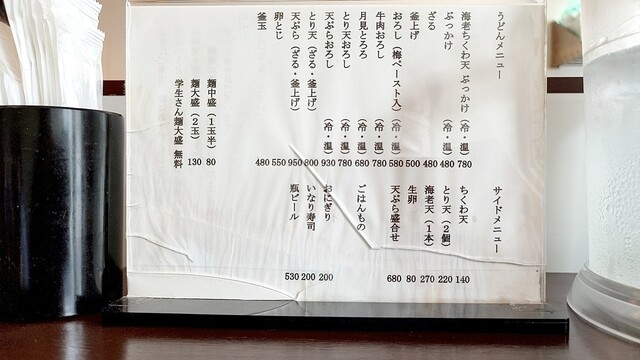 うどんメニュー
海老ちくわ天 ぶっかけ (冷・温) 780
ぶっかけ (冷・温) 480
ざる 480
釜上げ 500
おろし (梅ペースト入) (冷・温) 580
牛肉おろし (冷・温) 780
月見とろろ (冷・温) 680
とり天おろし (冷・温) 780
天ぷらおろし (冷・温) 930
とり天 (ざる・釜上げ) 800
天ぷら (ざる・釜上げ) 950
卵とじ 550
釜玉 480
麺中盛 (1玉半) 80
麺大盛 (2玉) 130
学生さん麺大盛 無料
サイドメニュー
ちくわ天 140
とり天 (2個) 220
海老天 (1本) 270
生卵 80
天ぷら盛合せ 680
ごはんもの
おにぎり 200
いなり寿司 200
瓶ビール 530